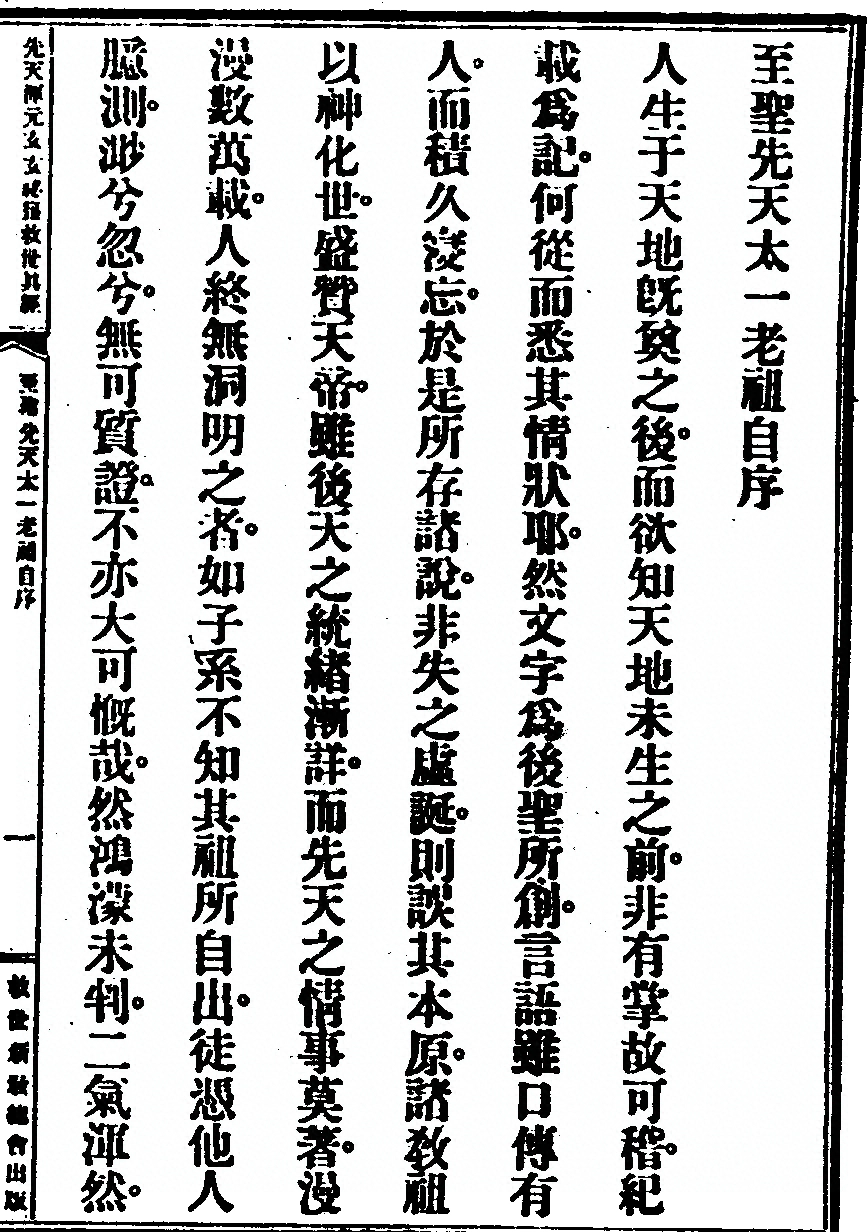 至聖先天太一老祖自序
人生于天地旣奠之後。而欲知天地未生之前。非有掌故可稽。紀
載爲記。何從而悉其情狀耶。然文字爲後聖所創。言語雖口傳有
人。而積久寖忘。於是所存諸說。非失之虛誕。則誤其本原。諸敎祖
以神化世。盛贊天帝。雖後天之統緒漸詳。而先天之情事莫著。漫
漫數萬載。人終無洞明之者。如子系不知其祖所自出。徒憑他人
臆測。渺兮忽兮。無可質證。不亦大可慨哉。然鴻濛未判。二氣渾然。
先天渾元玄玄祕籙救世眞經
至聖先天太一老祖自序
一
救世新敎總會出版